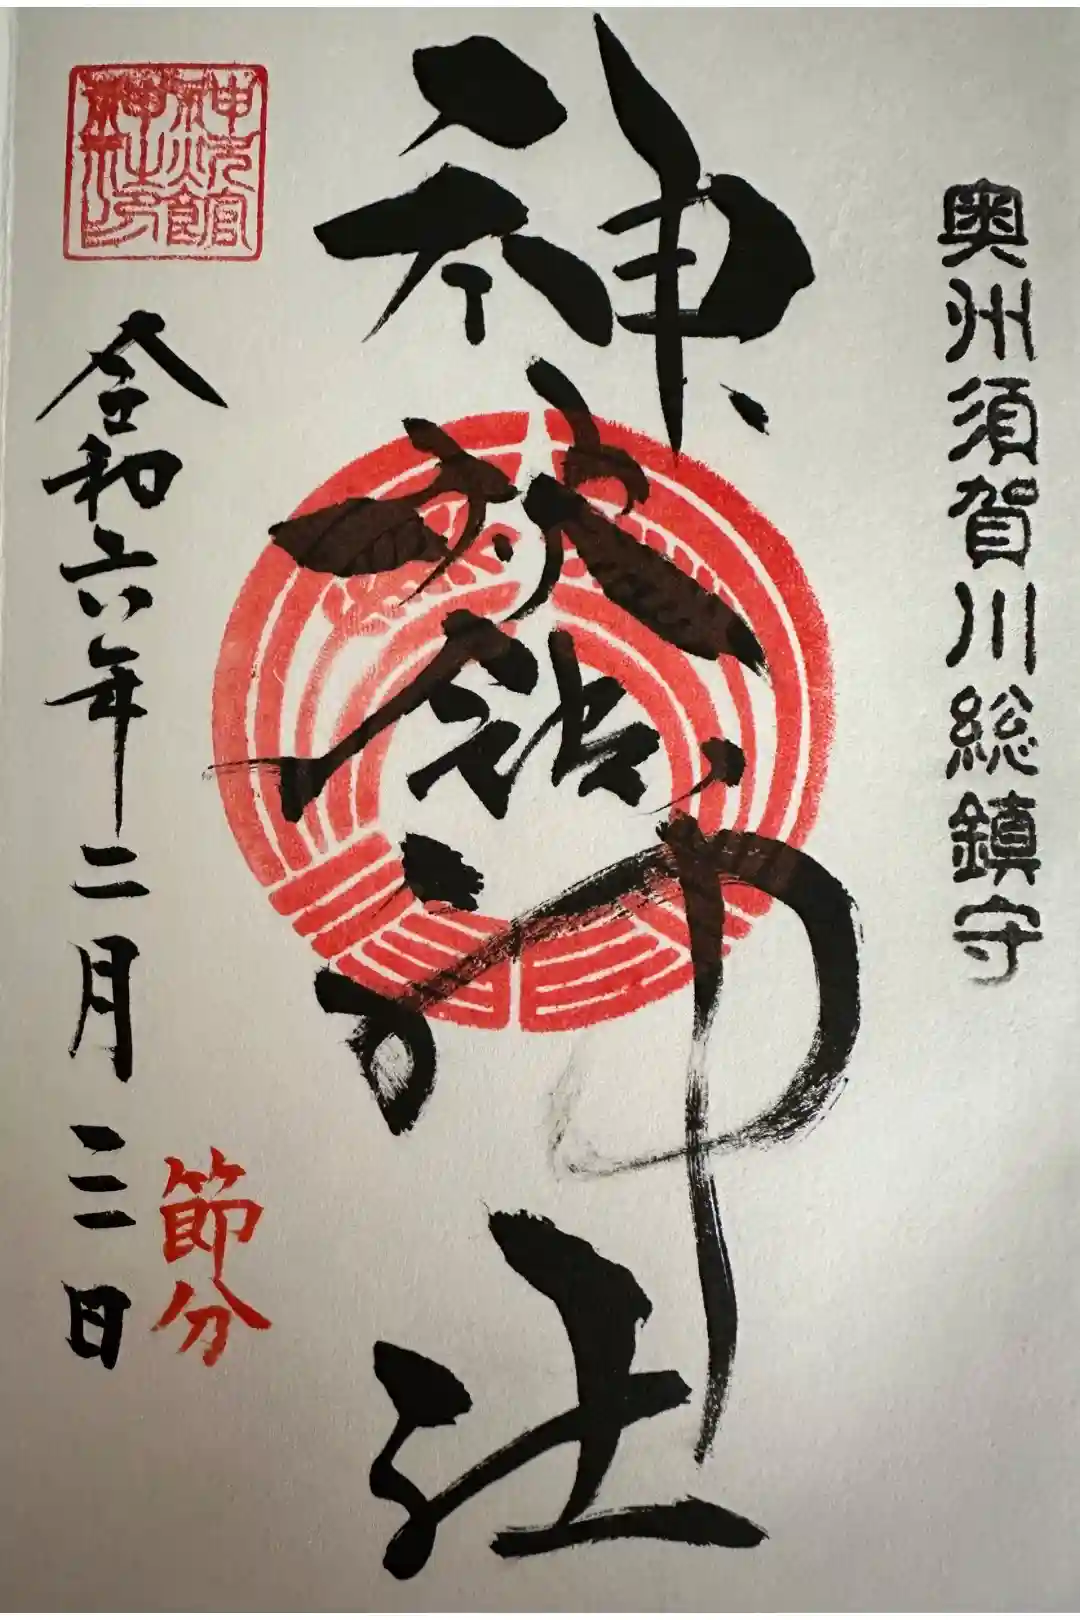 奥州須賀川総鎮守
神炊館神社
神炊館
神社
令和六年二月三日
節分